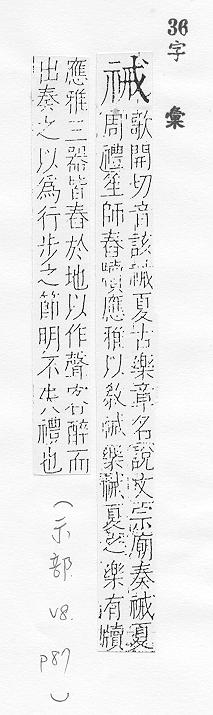 36字彙
祴
歌開切音該祴夏古樂章名說文宗廟奏祴夏
周禮笙師舂牘應雅以敎祴樂祴夏之樂有牘
應雅三器皆舂於地以作聲客醉而
出奏之以爲行步之節明不失禮也
(示部. V8. P87)